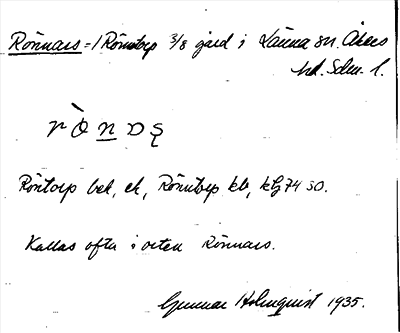 Rönnars = / Rönntorp 3/8 gård i Länna sn. Åkers
hd. Sdm. l.
Röntorp bek, ek, Rönntorp kb, ktg 74 SO.
Kallas ofta i orten Rönnars.
Gunnar Holmquist 1935.